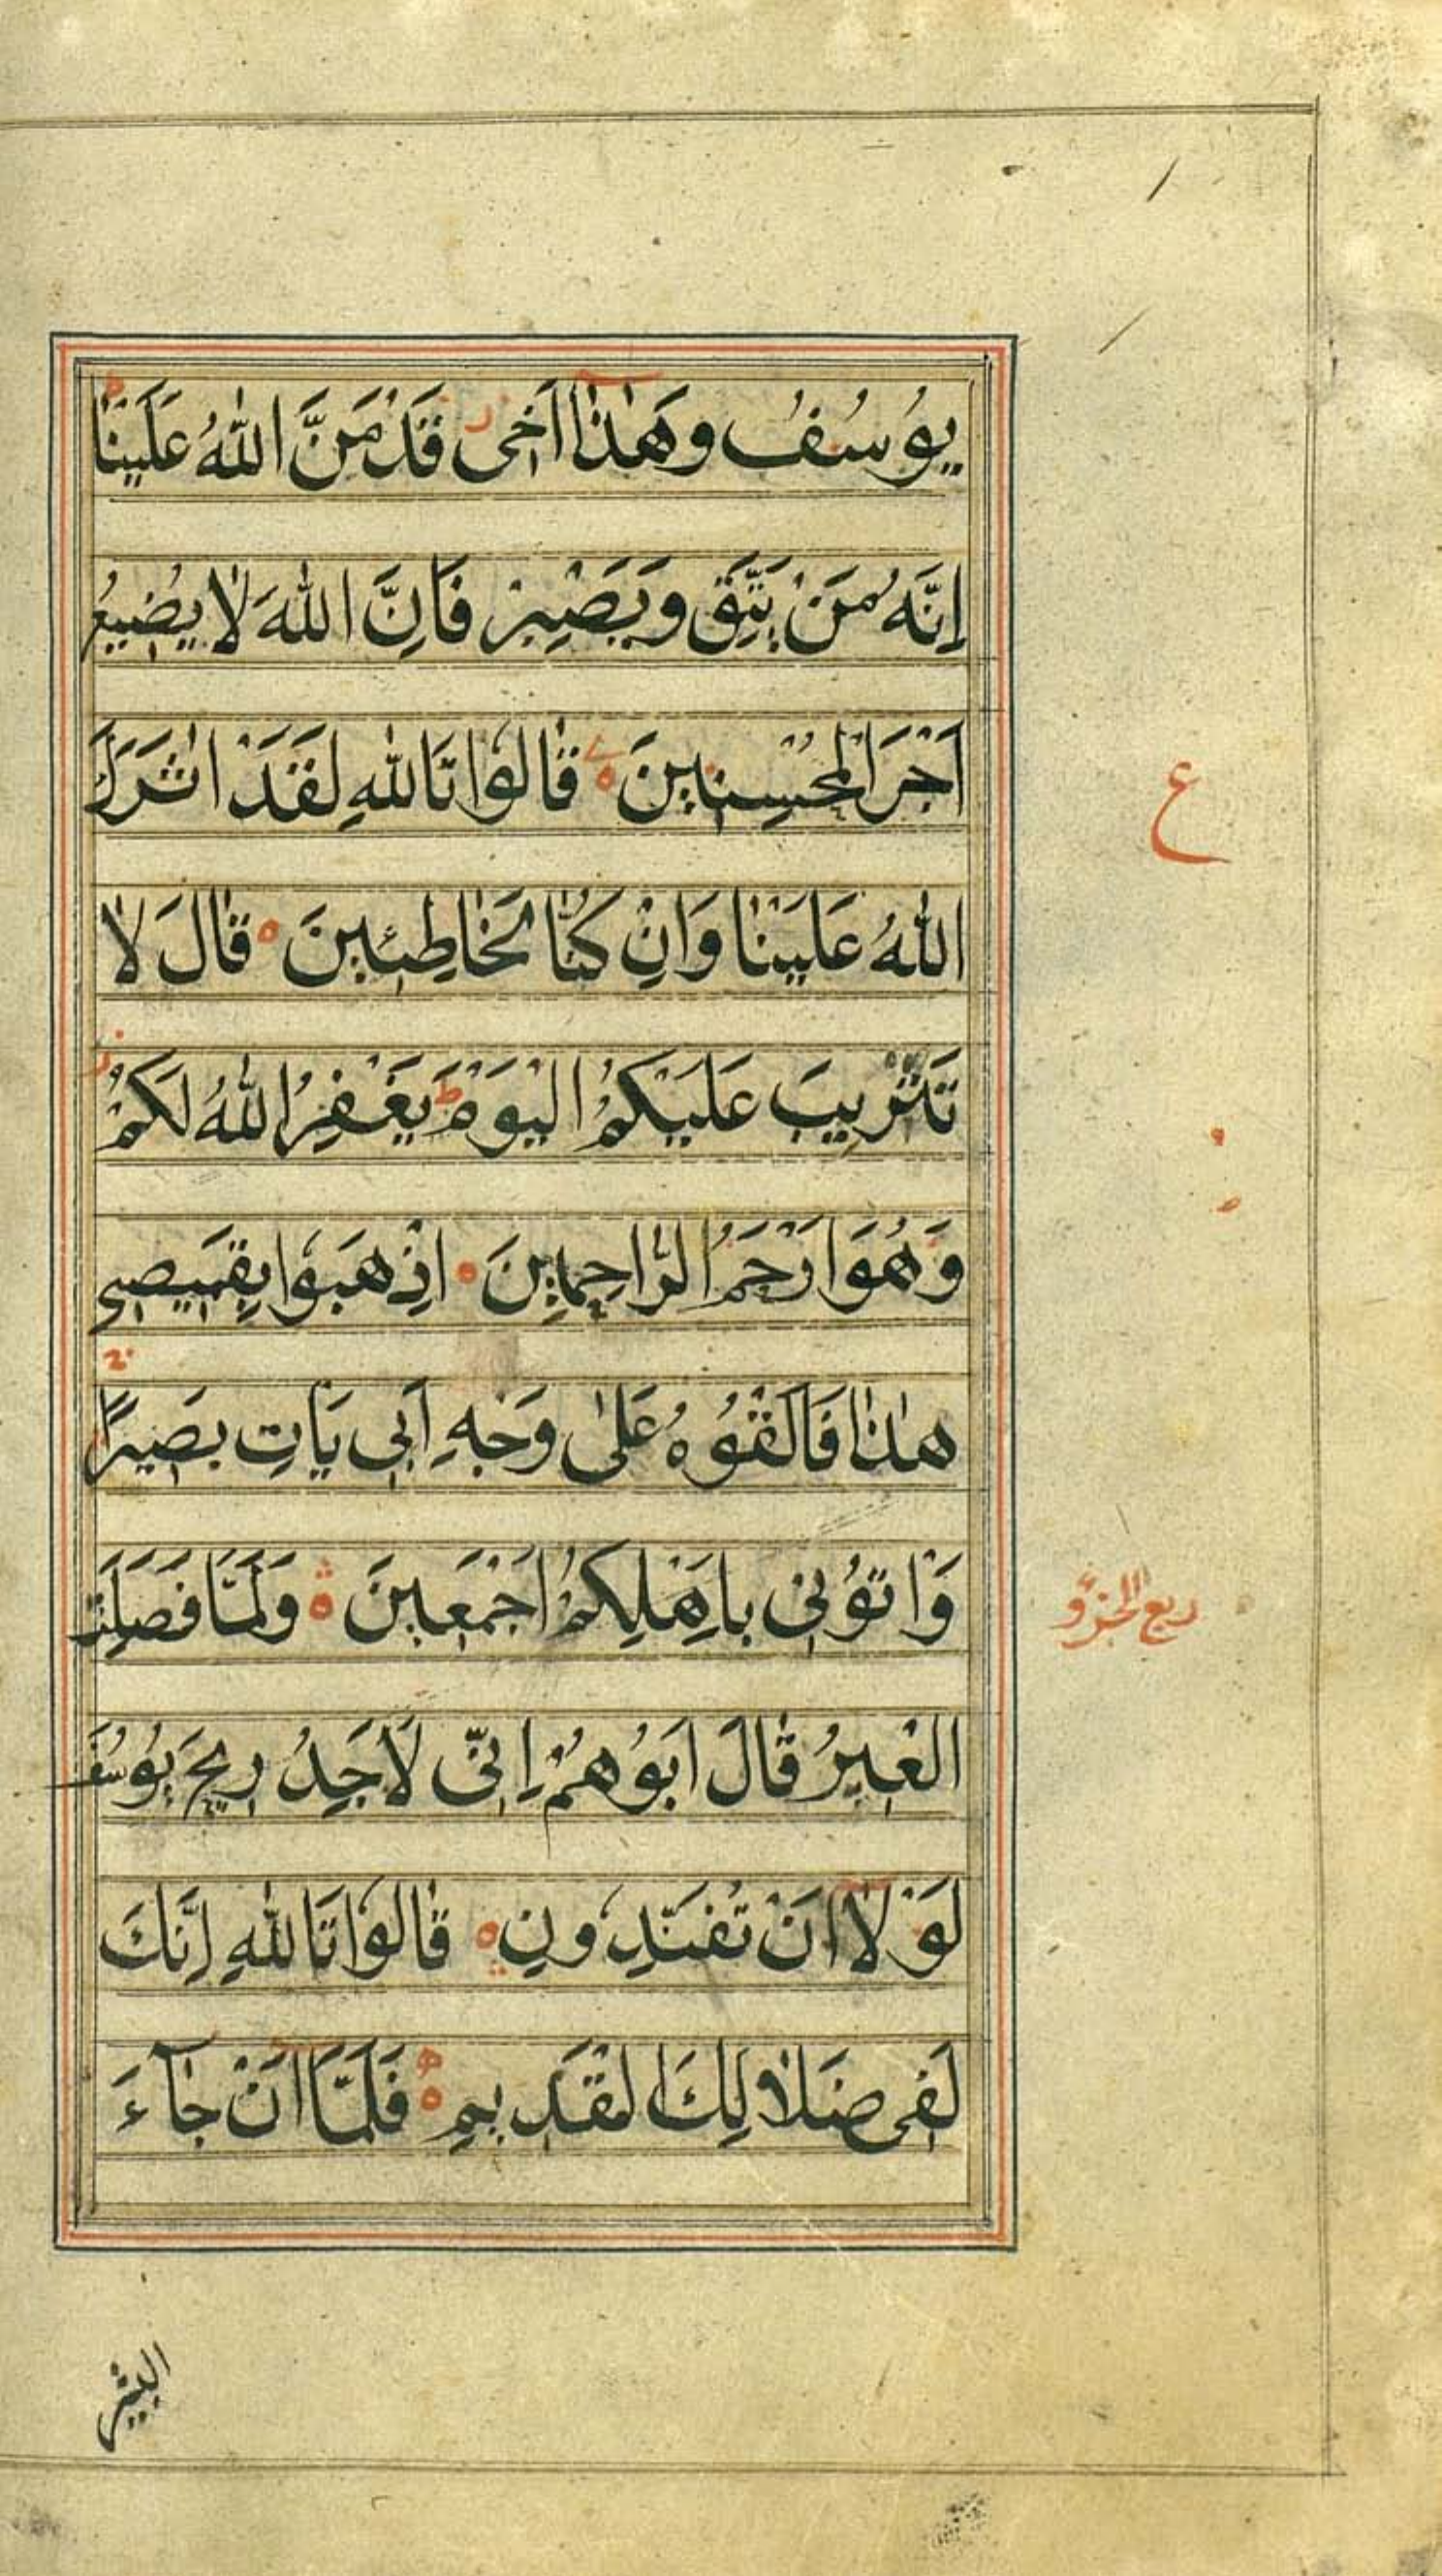 يُوسُفُ وَهٰذَا اَخِى قَدْ مَنَّ اللّٰهُ عَلَيْنَا ط
اِنَّهُ مَنْ يَتَّقِ وَيَصْبِرْ فَاِنَّ اللّٰهَ لَا يُضِيعُ
اَجْرَ الْمُحْسِنِينَ قَالُوا تَاللّٰهِ لَقَدْ اٰثَرَكَ
ع
اللّٰهُ عَلَيْنَا وَاِنْ كُنَّا لَخَاطِئِينَ قَالَ لَا
تَثْرِيبَ عَلَيْكُمُ الْيَوْمَ ط يَغْفِرُ اللّٰهُ لَكُمْ ز
وَهُوَ اَرْحَمُ الرَّاحِمِينَ اِذْهَبُوا بِقَمِيصِى
هٰذَا فَاَلْقُوهُ عَلٰى وَجْهِ اَبِى يَاْتِ بَصِيرًا
وَاْتُونِى بِاَهْلِكُمْ اَجْمَعِينَ وَلَمَّا فَصَلَتِ
ربع الجزو
الْعِيرُ قَالَ اَبُوهُمْ اِنِّى لَاَجِدُ رِيحَ يُوسُفَ
لَوْلَا اَنْ تُفَنِّدُونِ قَالُوا تَاللّٰهِ اِنَّكَ
لَفِى ضَلَالِكَ الْقَدِيمِ فَلَمَّا اَنْ جَآءَ
البشير